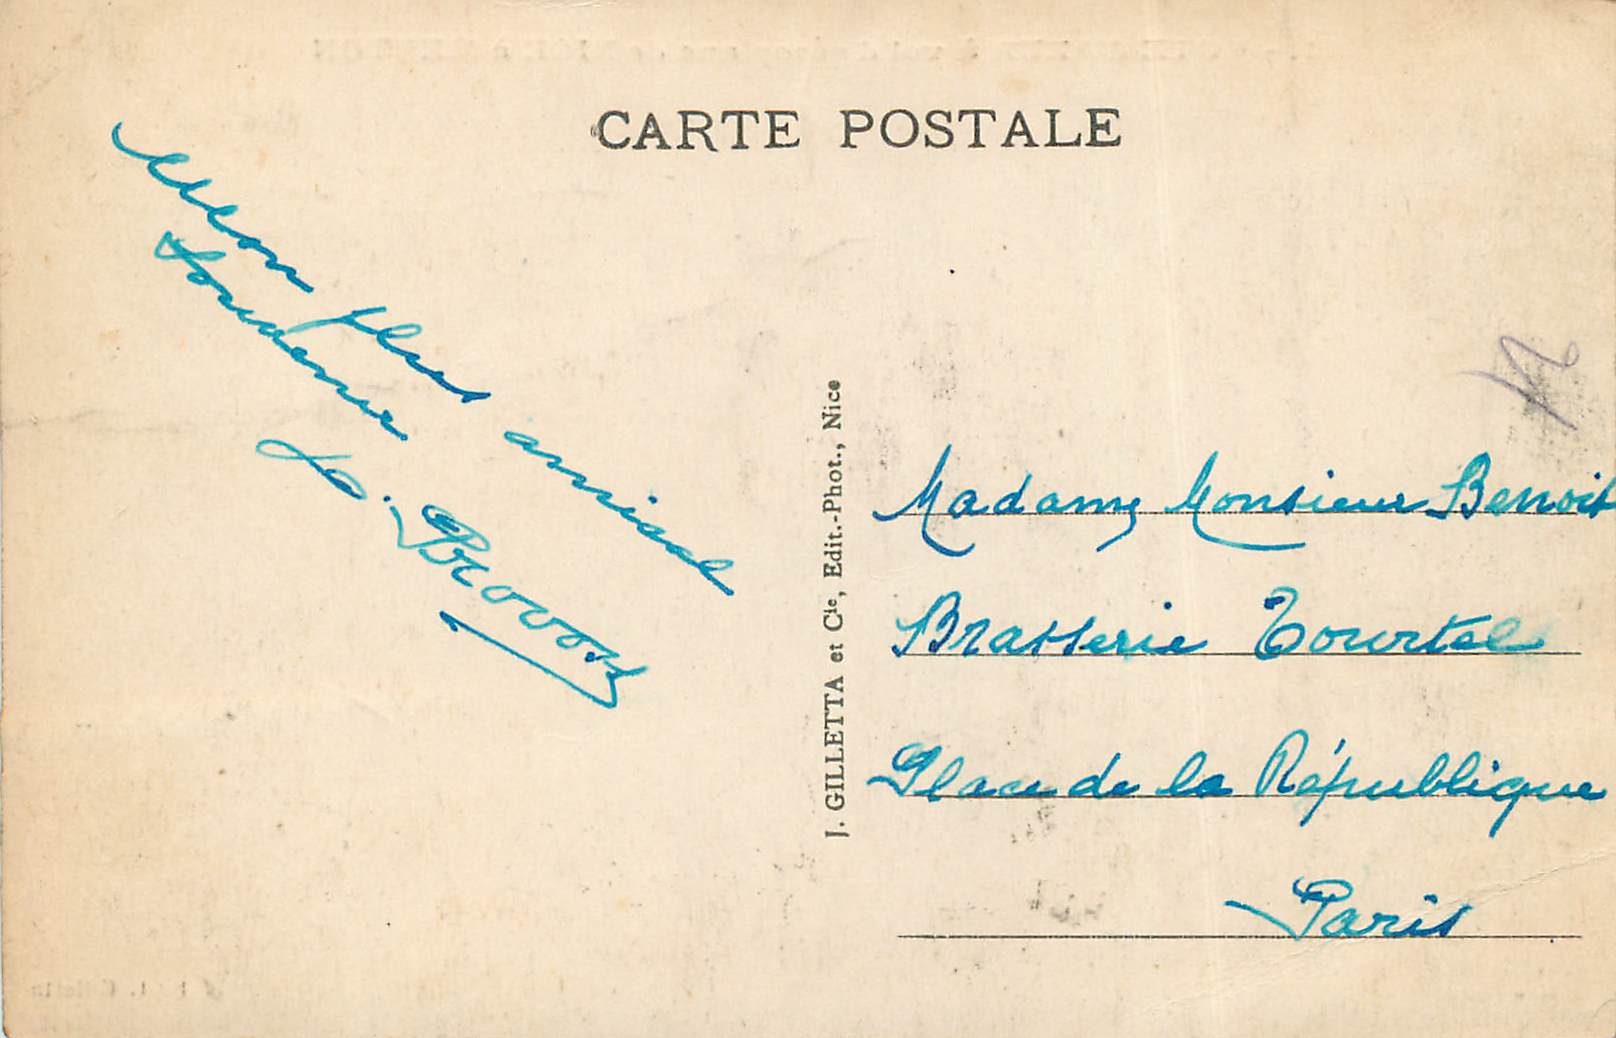 CARTE POSTALE
Mon plus amical
Souvenir
Provost
J. GILLETTA et Cie, Edit.-Phot., Nice
Madame Monsieur Benoit
Brasserie Tourtel
Place de la République
Paris